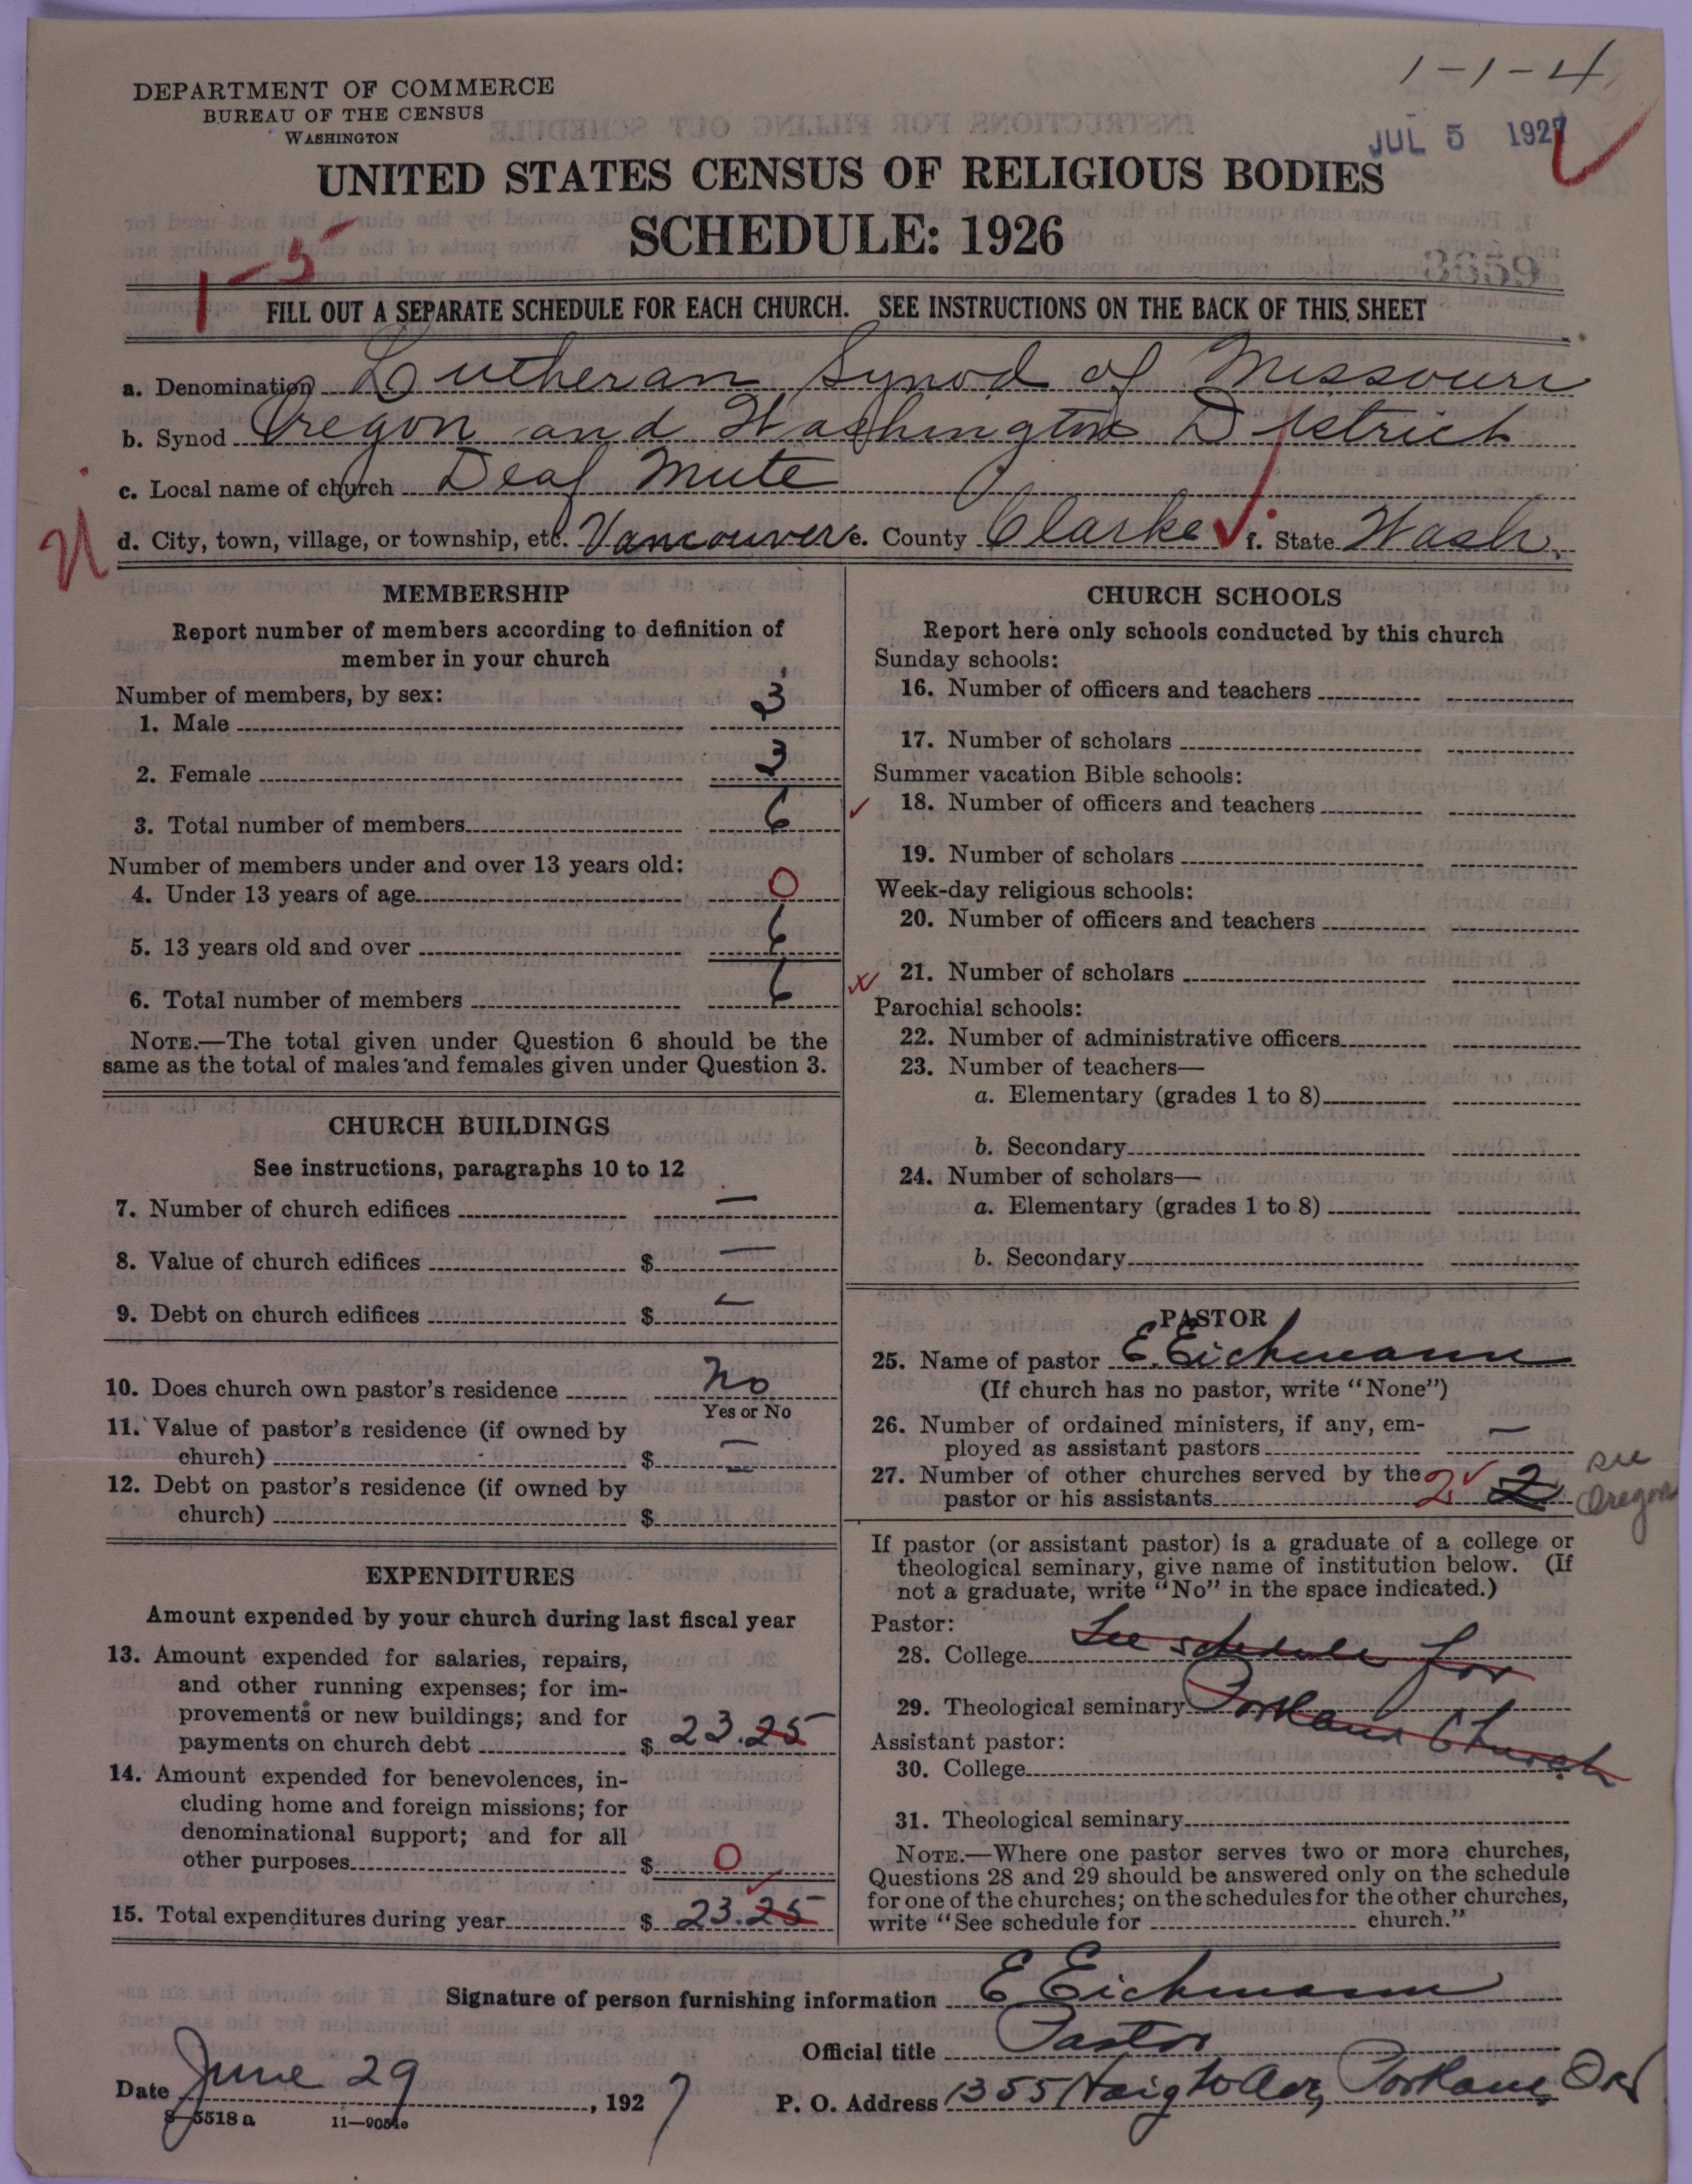 1-1-4
DEPARTMENT OF COMMERCE
BUREAU OF THE CENSUS
WASHINGTON
JUL 5 1927
UNITED STATES CENSUS OF RELIGIOUS BODIES
SCHEDULE: 1926
1-5
FILL OUT A SEPARATE SCHEDULE FOR EACH CHURCH. SEE INSTRUCTIONS ON THE BACK OF THIS SHEET
a. Denomination Lutheran Synod of Missouri
b. Synod Oregon and Washington District
c. Local name of church Deaf Mute
d. City, town, village, or township, etc. Vancouver e. County Clarke f. State Wash.
MEMBERSHIP
Report number of members according to definition of
member in your church
Number of members, by sex:
1. Male 3
2. Female 3
3. Total number of members 6
Number of members under and over 13 years old:
4. Under 13 years of age 0
5. 13 years old and over 6
6. Total number of members 6
NOTE.—The total given under Question 6 should be the
same as the total of males and females given under Question 3.
CHURCH BUILDINGS
See instructions, paragraphs 10 to 12
7. Number of church edifices —
8. Value of church edifices $ —
9. Debt on church edifices $ —
10. Does church own pastor's residence No
Yes or No
11. Value of pastor's residence (if owned by
church) $ —
12. Debt on pastor's residence (if owned by
church) $
EXPENDITURES
Amount expended by your church during last fiscal year
13. Amount expended for salaries, repairs,
and other running expenses; for im-
provements or new buildings; and for
payments on church debt $ 23.25
14. Amount expended for benevolences, in-
cluding home and foreign missions; for
denominational support; and for all
other purposes $ 0
15. Total expenditures during year $ 23.25
CHURCH SCHOOLS
Report here only schools conducted by this church
Sunday schools:
16. Number of officers and teachers
17. Number of scholars
Summer vacation Bible schools:
18. Number of officers and teachers
19. Number of scholars
Week-day religious schools:
20. Number of officers and teachers
21. Number of scholars
Parochial schools:
22. Number of administrative officers
23. Number of teachers—
a. Elementary (grades 1 to 8)
b. Secondary
24. Number of scholars—
a. Elementary (grades 1 to 8)
b. Secondary
PASTOR
25. Name of pastor E. Eichmann
(If church has no pastor, write "None")
26. Number of ordained ministers, if any, em-
ployed as assistant pastors —
27. Number of other churches served by the
pastor or his assistants 2 2 see Oregon
If pastor (or assistant pastor) is a graduate of a college or
theological seminary, give name of institution below. (If
not a graduate, write "No" in the space indicated.)
Pastor:
28. College See schedule for
29. Theological seminary Portland Church
Assistant pastor:
30. College
31. Theological seminary
NOTE.—Where one pastor serves two or more churches,
Questions 28 and 29 should be answered only on the schedule
for one of the churches; on the schedules for the other churches,
write "See schedule for church."
Signature of person furnishing information E Eichmann
Official title Pastor
Date June 29, 1927
P. O. Address 1355 Haight Ave, Portland, Ore
8-5518 a 11-9054c